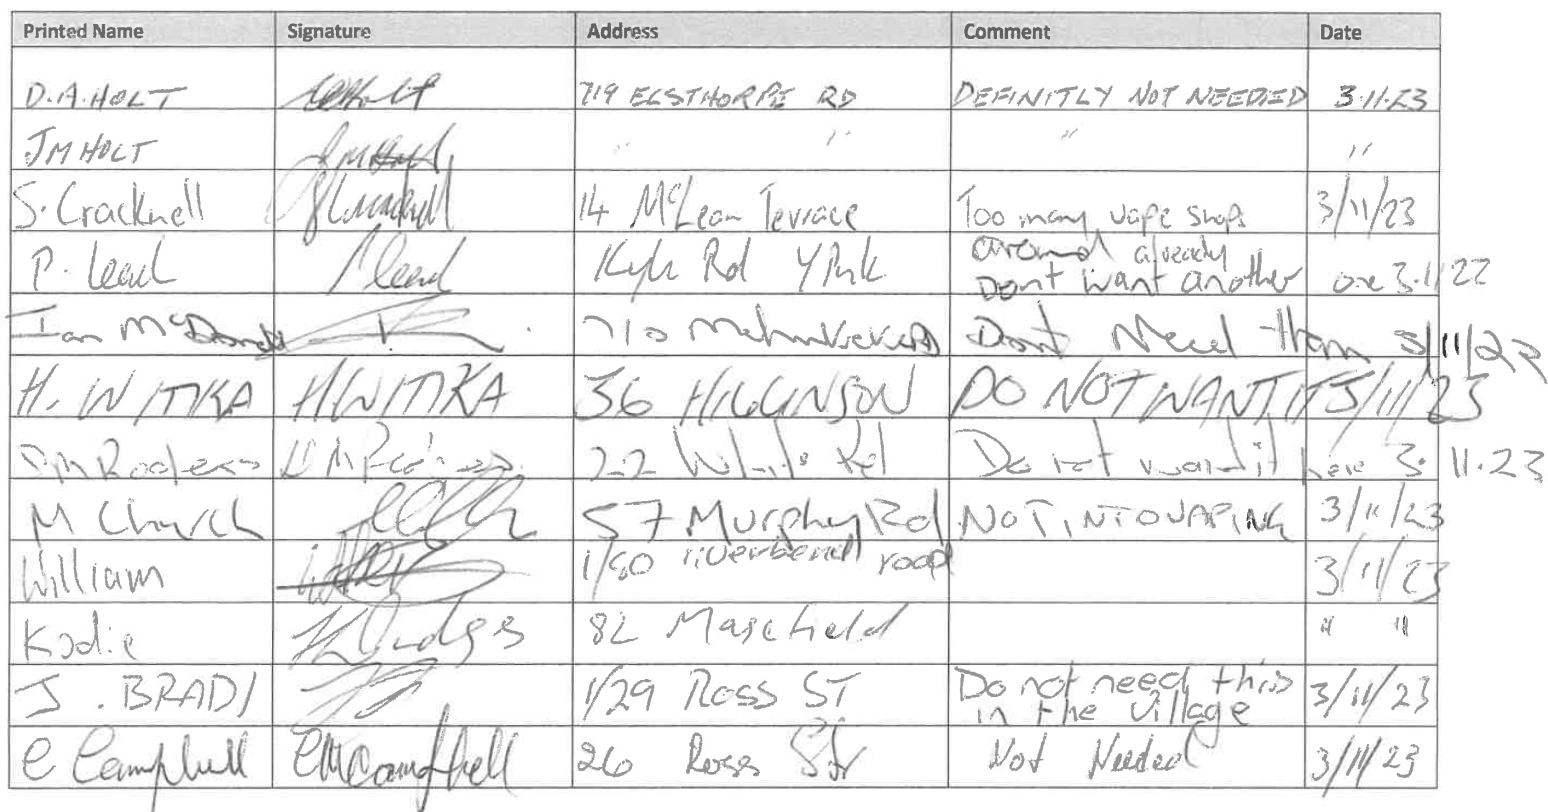 Printed Name Signature Address Comment Date
D.A.HOLT 719 ELSTHORPE RD DEFINITLY NOT NEEDED 3.11.23
JM HOLT " " " "
S. Cracknell 14 McLean Terrace Too many vape shops 3/11/23
around already
P. Lead Rd Y Prk Dont want another one 3.11/22
Ian McDonald 710 Dont Need them 3/11/23
H. WITIKA HWITIKA 36 HIGGINSON DO NOT WANT IT 3/11/23
DM Rodgers 22 White Rd Do not want it here 3.11.23
M Church 57 Murphy Rd NOT INTO VAPING 3/11/23
William 1/80 riverbend road 3/11/23
Kodie 82 Masefield " "
J. BRADY 1/29 Ross ST Do not need this 3/11/23
in the village
C Campbell CMCampbell 26 Ross Str Not Needed 3/11/23